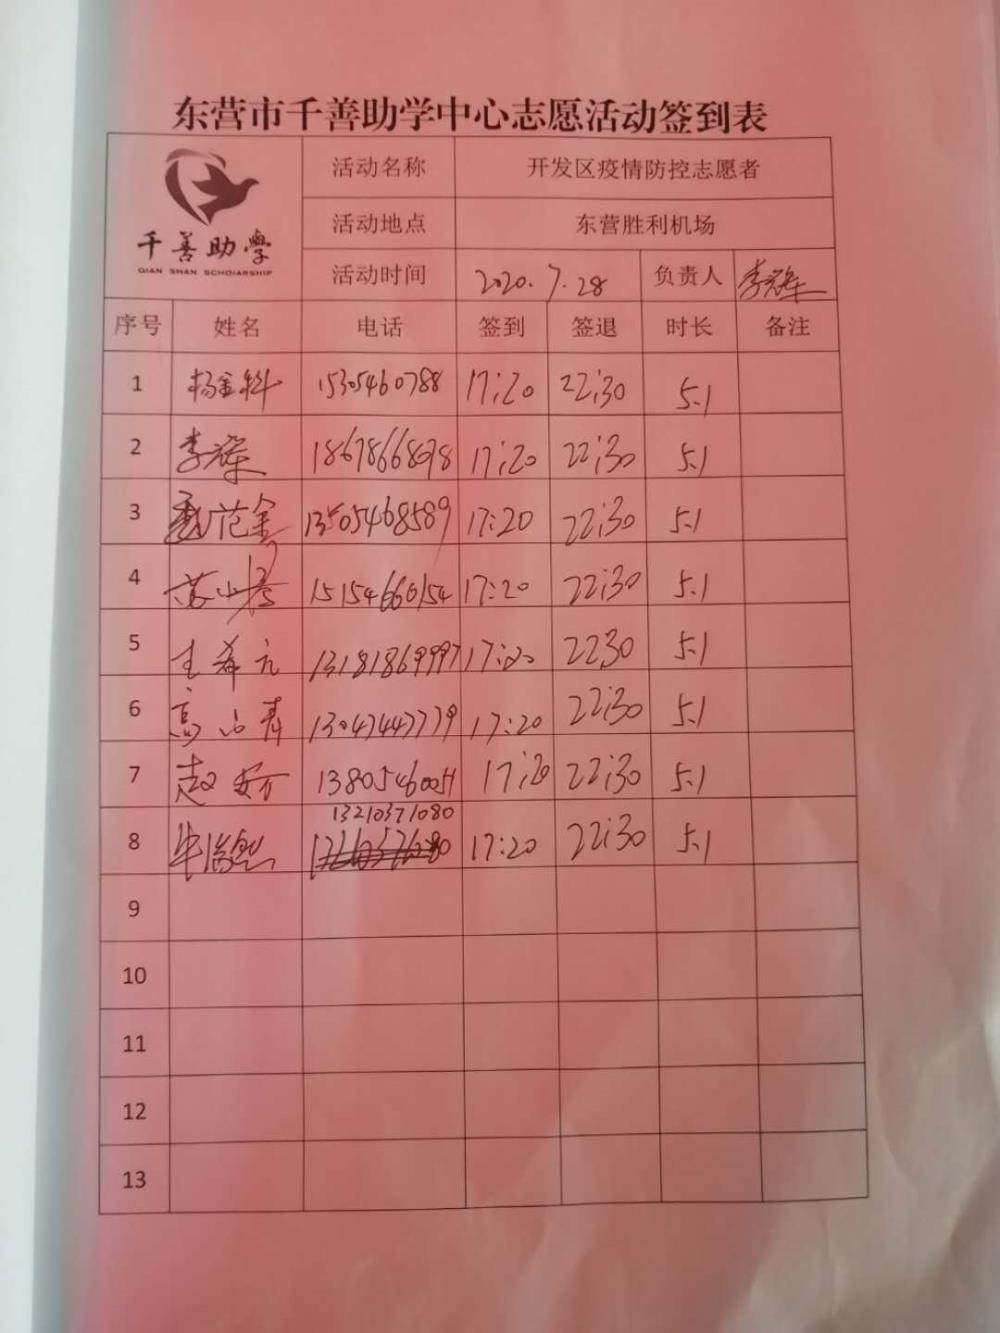 东营市千善助学中心志愿活动签到表
千善助學
QIAN SHAN SCHOIARSHIP
活动名称 开发区疫情防控志愿者
活动地点 东营胜利机场
活动时间 2020.7.28 负责人 李辉
序号 姓名 电话 签到 签退 时长 备注
1 杨金科 15305460788 17:20 22:30 5.1
2 李辉 18678668078 17:20 22:30 5.1
3 13505468589 17:20 22:30 5.1
4 苏 15154660154 17:20 22:30 5.1
5 王希元 13181869997 17:20 2230 5.1
6 高 青 13047447779 17:20 22:30 5.1
7 赵 13805460051 17:20 22:30 5.1
13210371080
8 17:20 22:30 5.1
9
10
11
12
13